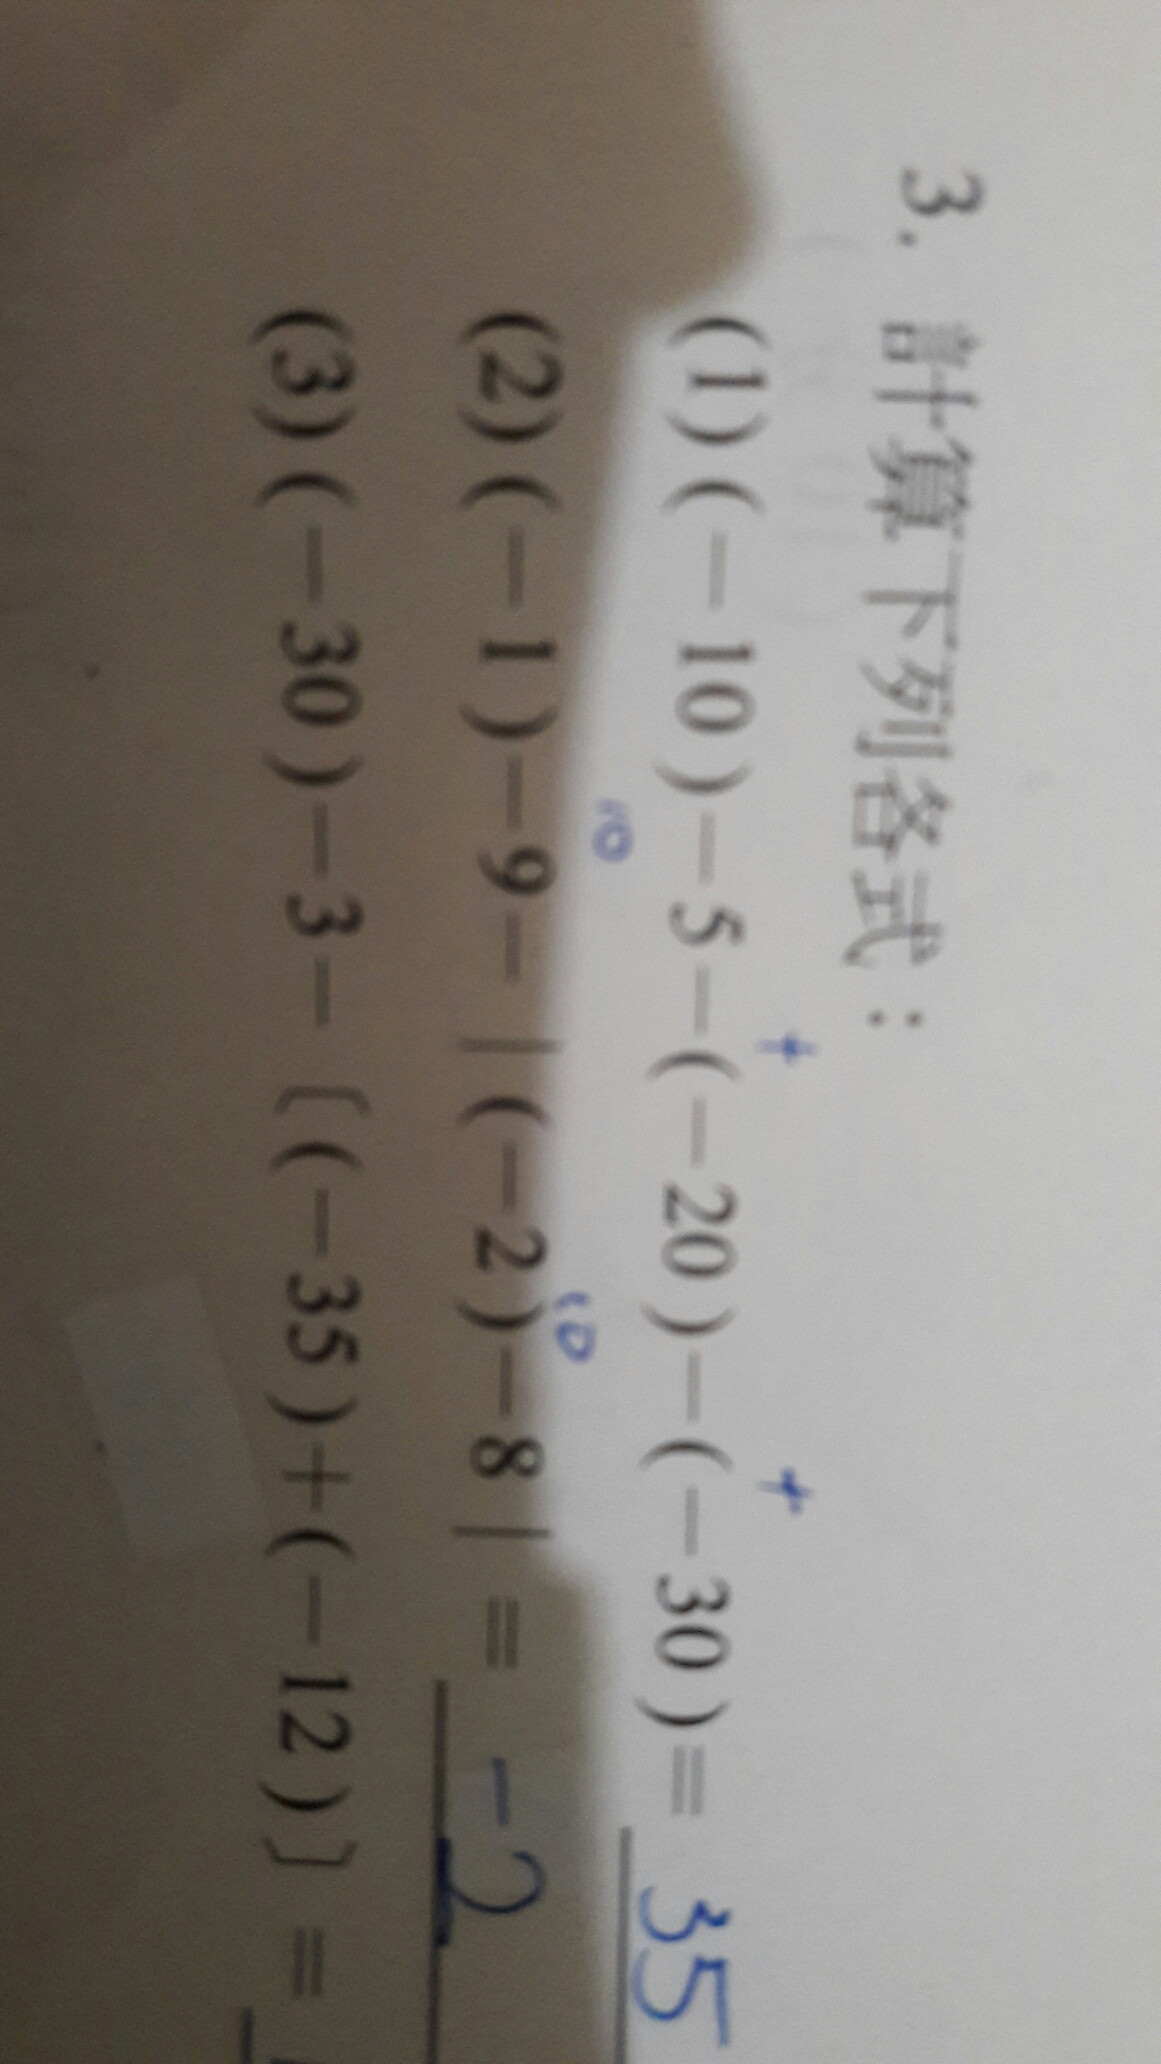 3. 計算下列各式：
(1)(－10)－5－(－20)－(－30)＝ 35
+ +
(2)(－1)－9－|(－2)－8|＝ －2
(3)(－30)－3－〔(－35)＋(－12)〕＝